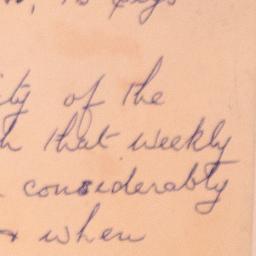 ity of the
that weekly
considerably
& when